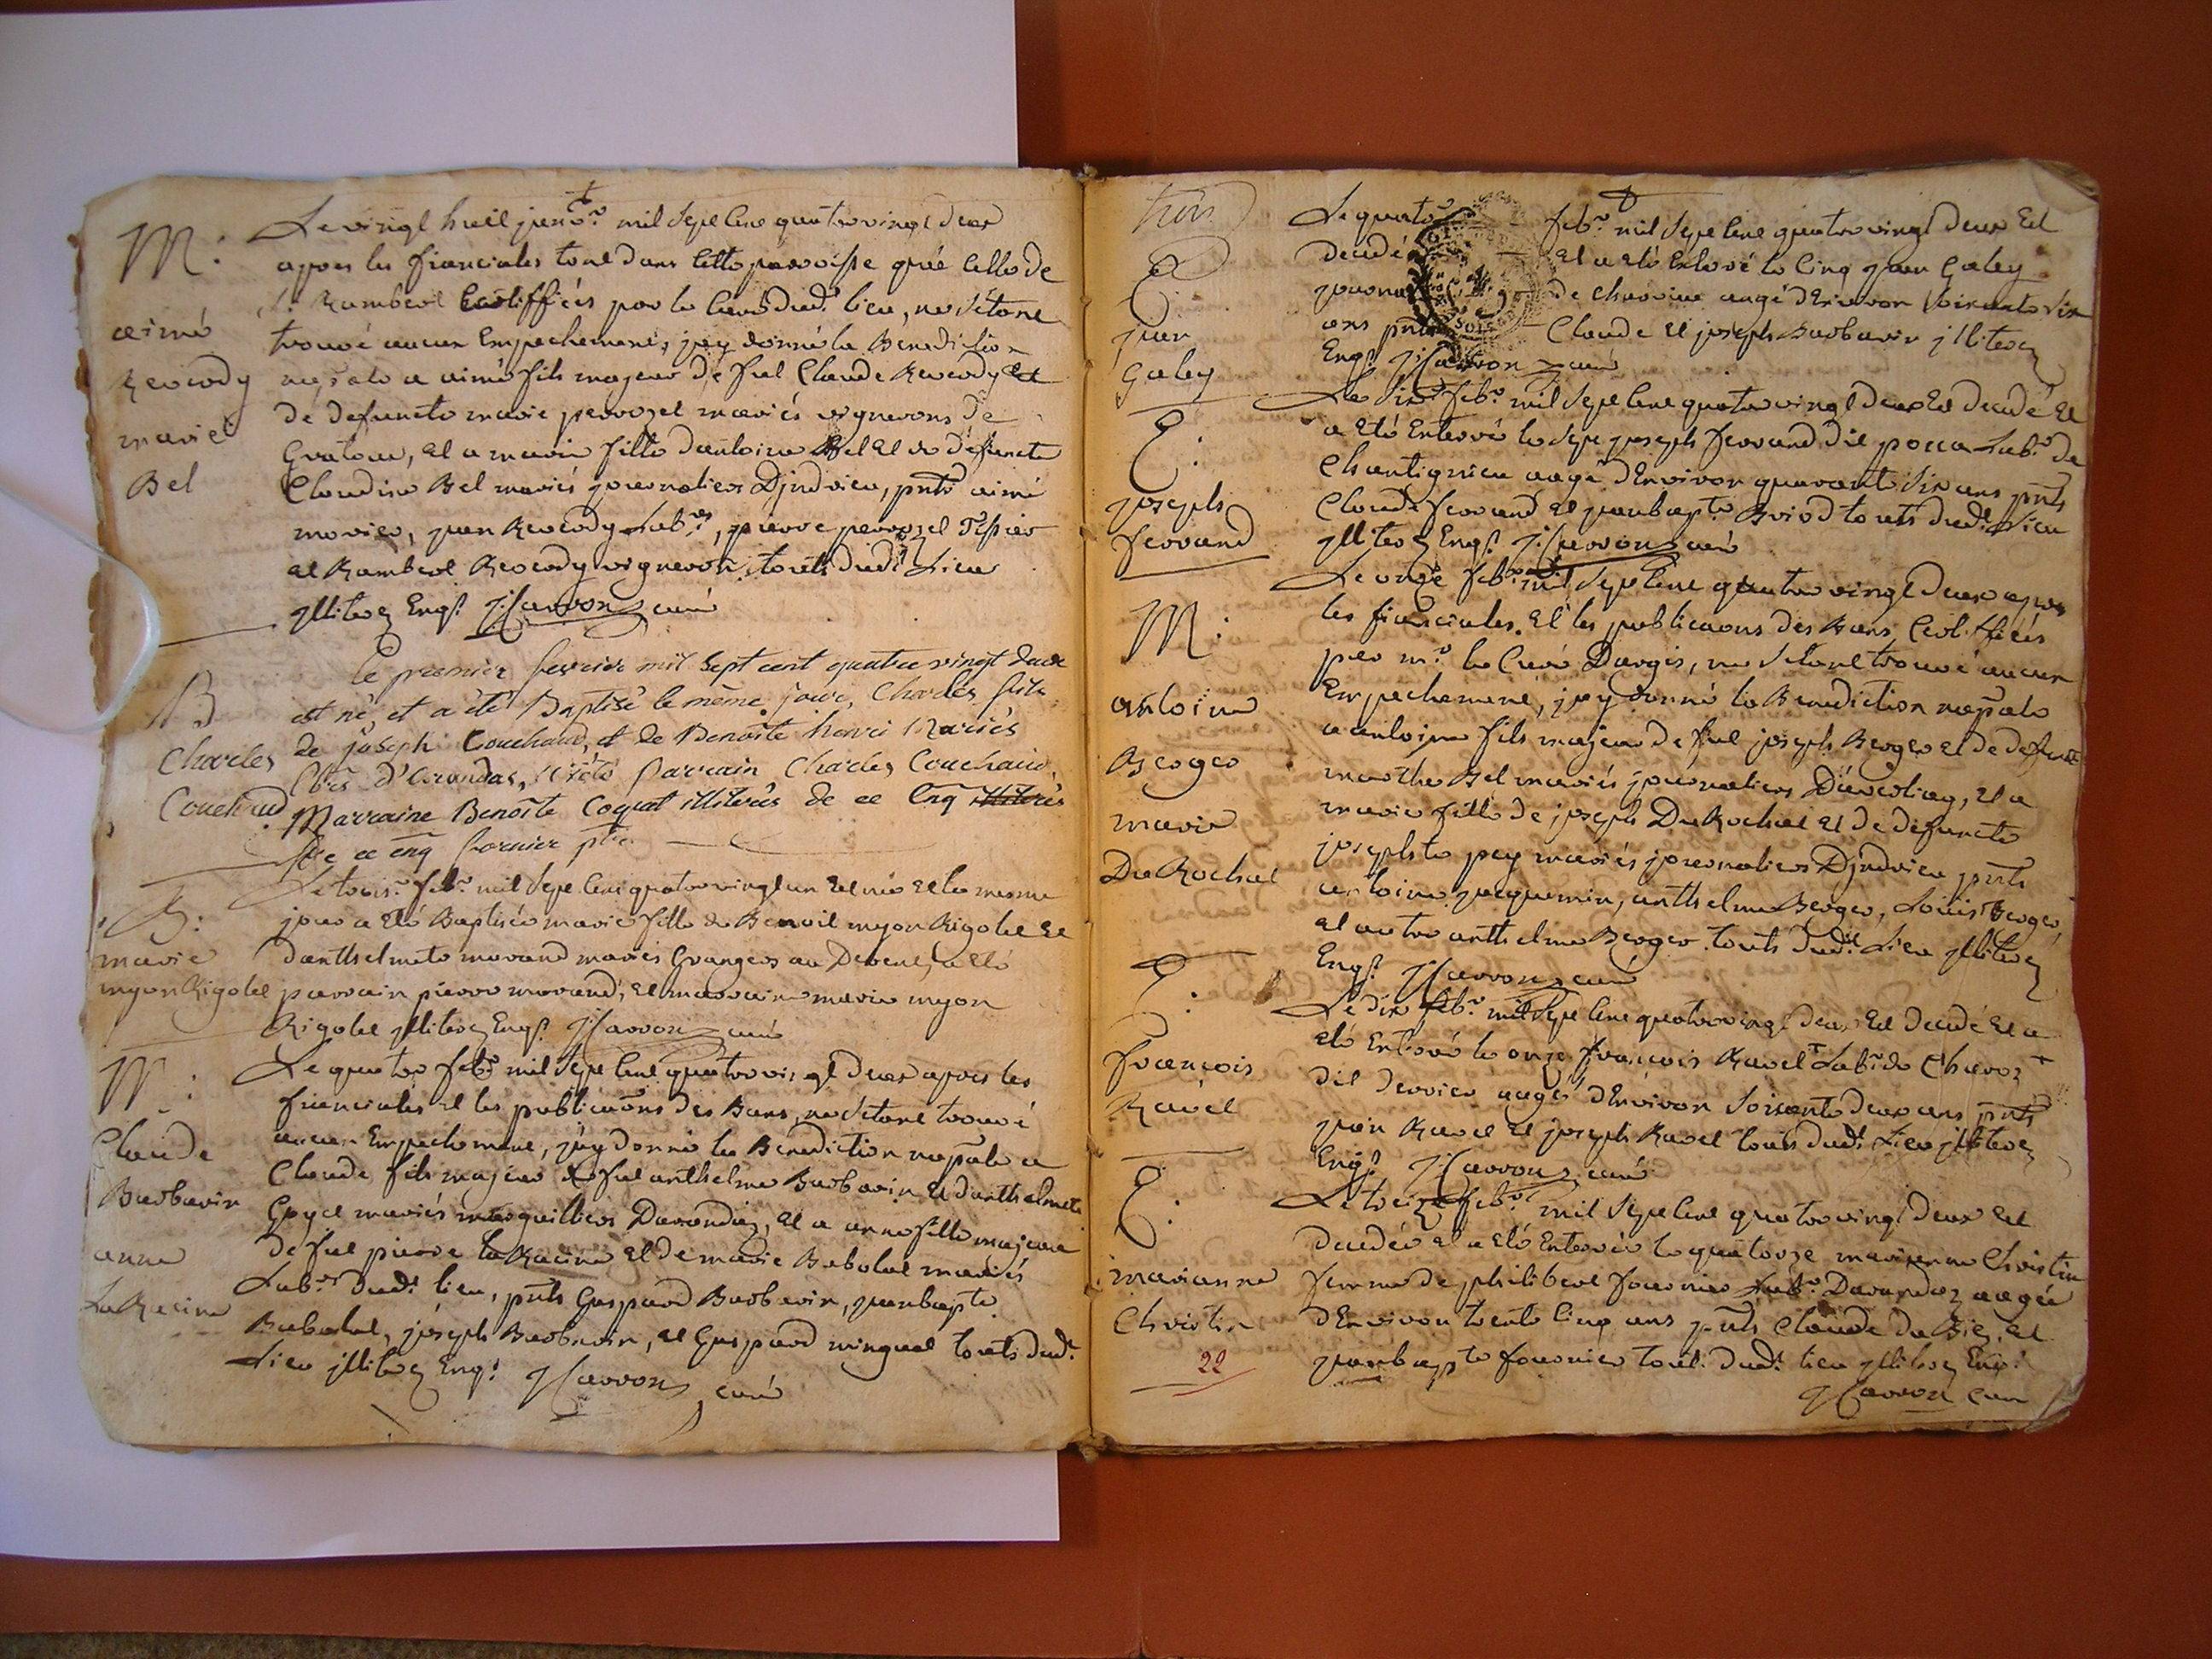 M:
aimé
Reverdy
marie
Bel
Le vingt huit janvr. mil sept cent quatre vingt deux
apres les fianciales tant dans cette paroisse qué celle de
St. Rambert certiffiés par le curé dudt. lieu, ne s'étant
trouvé aucun Empechement, jay donné la Benediction
nuptale a aimé fils majeur de fut Claude Reverdy et
de defuncte marie perrozet mariés vignerons de
et a marie fille dantoine Bel et de défuncte
Claudine Bel mariés journaliers Djndrieu, pnts aimé
jean Reverdy Labrs, pierre perrozet
et Rambert Reverdy vigneron touts dudt. Lieu
jlliterez Enqs. J: Carron curé
B
Charles
Couchaud
le premier fevrier mil sept cent quatre vingt deux
est né, et a été Baptisé le même jour, Charles fils
de joseph Couchaud, et de Benoîte henri Mariés
Lbrs d'Arandas, a été Parrain Charles Couchaud
Marraine Benoîte Coquat illiterés de ce Enq illiterés
de ce enq fornier ptre
B:
marie
myon Rigolet
Le trois febr. mil sept cent quatre vingt un Est né et le mesme
jour a Eté Baptisée marie fille de Benoit myon Rigolet et
danthelmete morand mariés Grangers au a Eté
parrain pierre morand, et marraine marie myon
Rigolet jlliterez Enqs. J: Carron curé
M:
Claude
Barbarin
anne
La Racine
Le quatre febr. mil sept cent quatre vingt deux apres les
fianciales et les publicaons des Bans, ne s'etant trouvé
aucun Empechement, jay donné la Benediction nuptale a
Claude fils majeur de fut anthelme Barbarin et danthelmete
mariés et a anne fille majeure
de fut pierre La Racine et de marie Babolat mariés
Labrs dudt. lieu, pnts Gaspard Barbarin, jeanbapte
Babolat, joseph Barbarin, et Gaspard minguet touts dudt.
Lieu jlliterez Enqs. J: Carron curé
trois
E
jean
Galey
Le quatre febr. mil sept cent quatre vingt deux Est
decedé et a eté Enterré le cinq jean Galey
de aagé dEnviron soixante six
ans pnts Claude et joseph Barbarin jlliterez
Enqs. J: Carron curé
E:
joseph
ferrand
Le six febr. mil sept cent quatre vingt deux Est decedé et
a Eté Enterré le sept joseph ferrand dit Labr. de
Chantignieu aagé dEnviron quarante six ans pnts
Claude ferrand et jeanbapte Briod touts dudt. Lieu
jlliterez Enqs. J: Carron curé
M:
antoine
Berger
marie
Du Rochat
Le onze febr. mil sept cent quatre vingt deux apres
les fianciales et les publicaons des Bans certiffiés
par mr. le Curé ne s'étant trouvé aucun
Empechement, jay donné la Benediction nuptale
a antoine fils majeur de fut joseph Berger et de defuncte
marthe Bel mariés journaliers et a
marie fille de joseph Du Rochat et de defuncte
josephte pey mariés journaliers Djndrieu pnts
antoine jacquemin, anthelme Berger, Louis Berger,
et autre anthelme Berger touts dudt. Lieu jlliterez
Enqs. J: Carron curé
E.
françois
Ravet
Le dix febr. mil sept cent quatre vingt deux Est decedé et a
eté Enterré le onze françois Ravet Labr. de
dit aagé dEnviron soixante deux ans pnts
jean Ravet et joseph Ravet touts dudt. Lieu jlliterez
Enqs. J: Carron curé
E:
marianne
Christin
22
Le treize febr. mil sept cent quatre vingt deux est
decedée et a eté Enterrée le quatorze marianne Christin
femme de philibert fournier Labr. aagée
dEnviron trente cinq ans pnts Claude et
jeanbapte fournier touts dudt. lieu jlliterez Enqs.
J: Carron curé